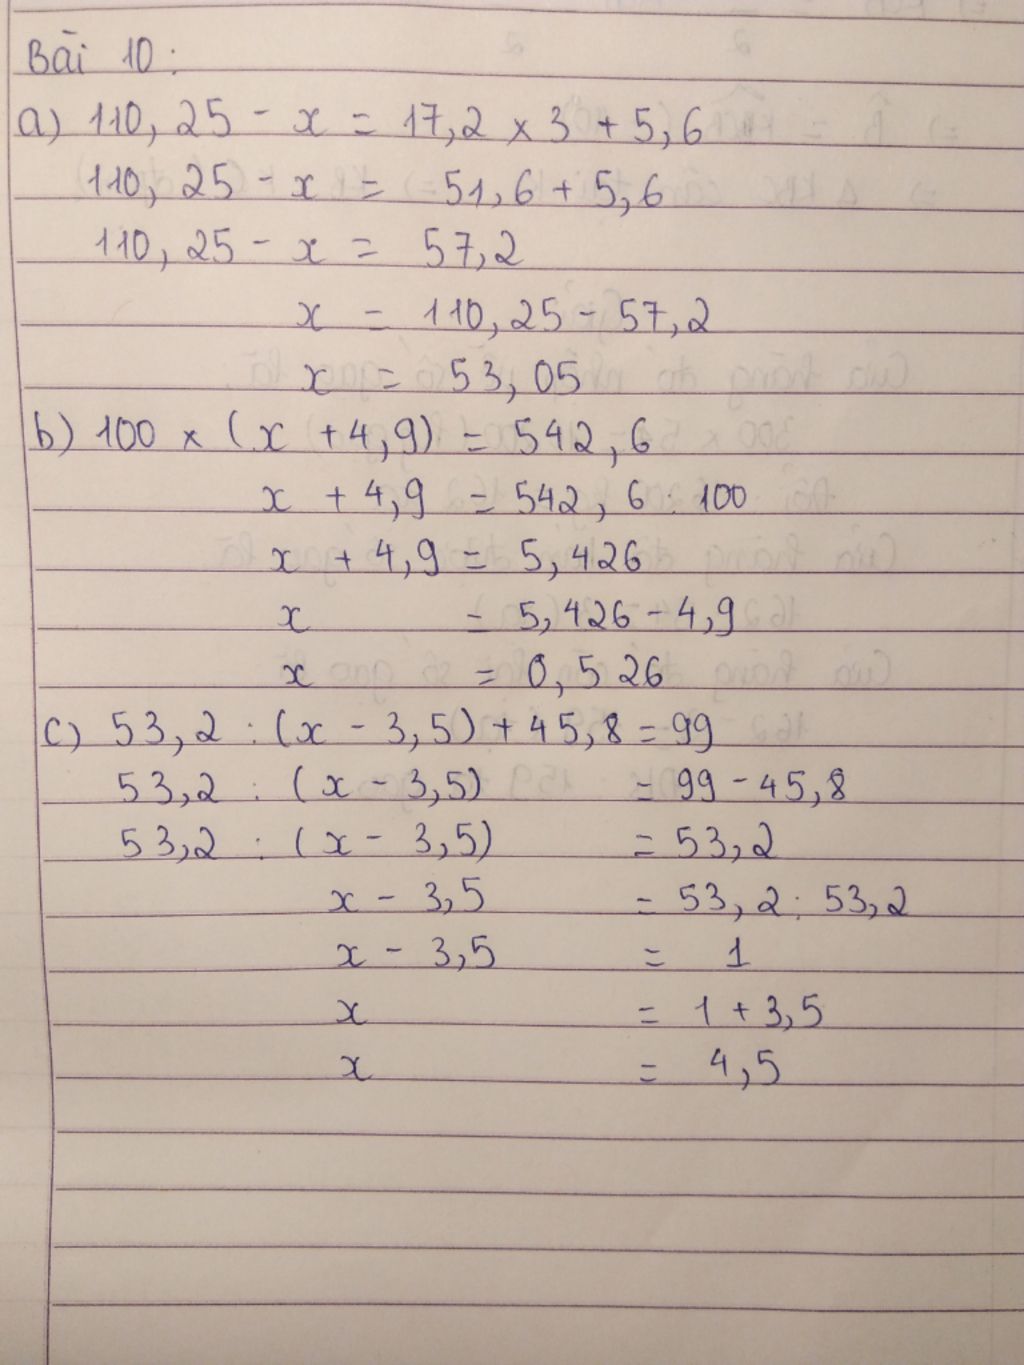 Bài 10:
a) 110,25 - x = 17,2 × 3 + 5,6
110,25 - x = 51,6 + 5,6
110,25 - x = 57,2
x = 110,25 - 57,2
x = 53,05
b) 100 × (x + 4,9) = 542,6
x + 4,9 = 542,6 : 100
x + 4,9 = 5,426
x = 5,426 - 4,9
x = 0,526
c) 53,2 : (x - 3,5) + 45,8 = 99
53,2 : (x - 3,5) = 99 - 45,8
53,2 : (x - 3,5) = 53,2
x - 3,5 = 53,2 : 53,2
x - 3,5 = 1
x = 1 + 3,5
x = 4,5